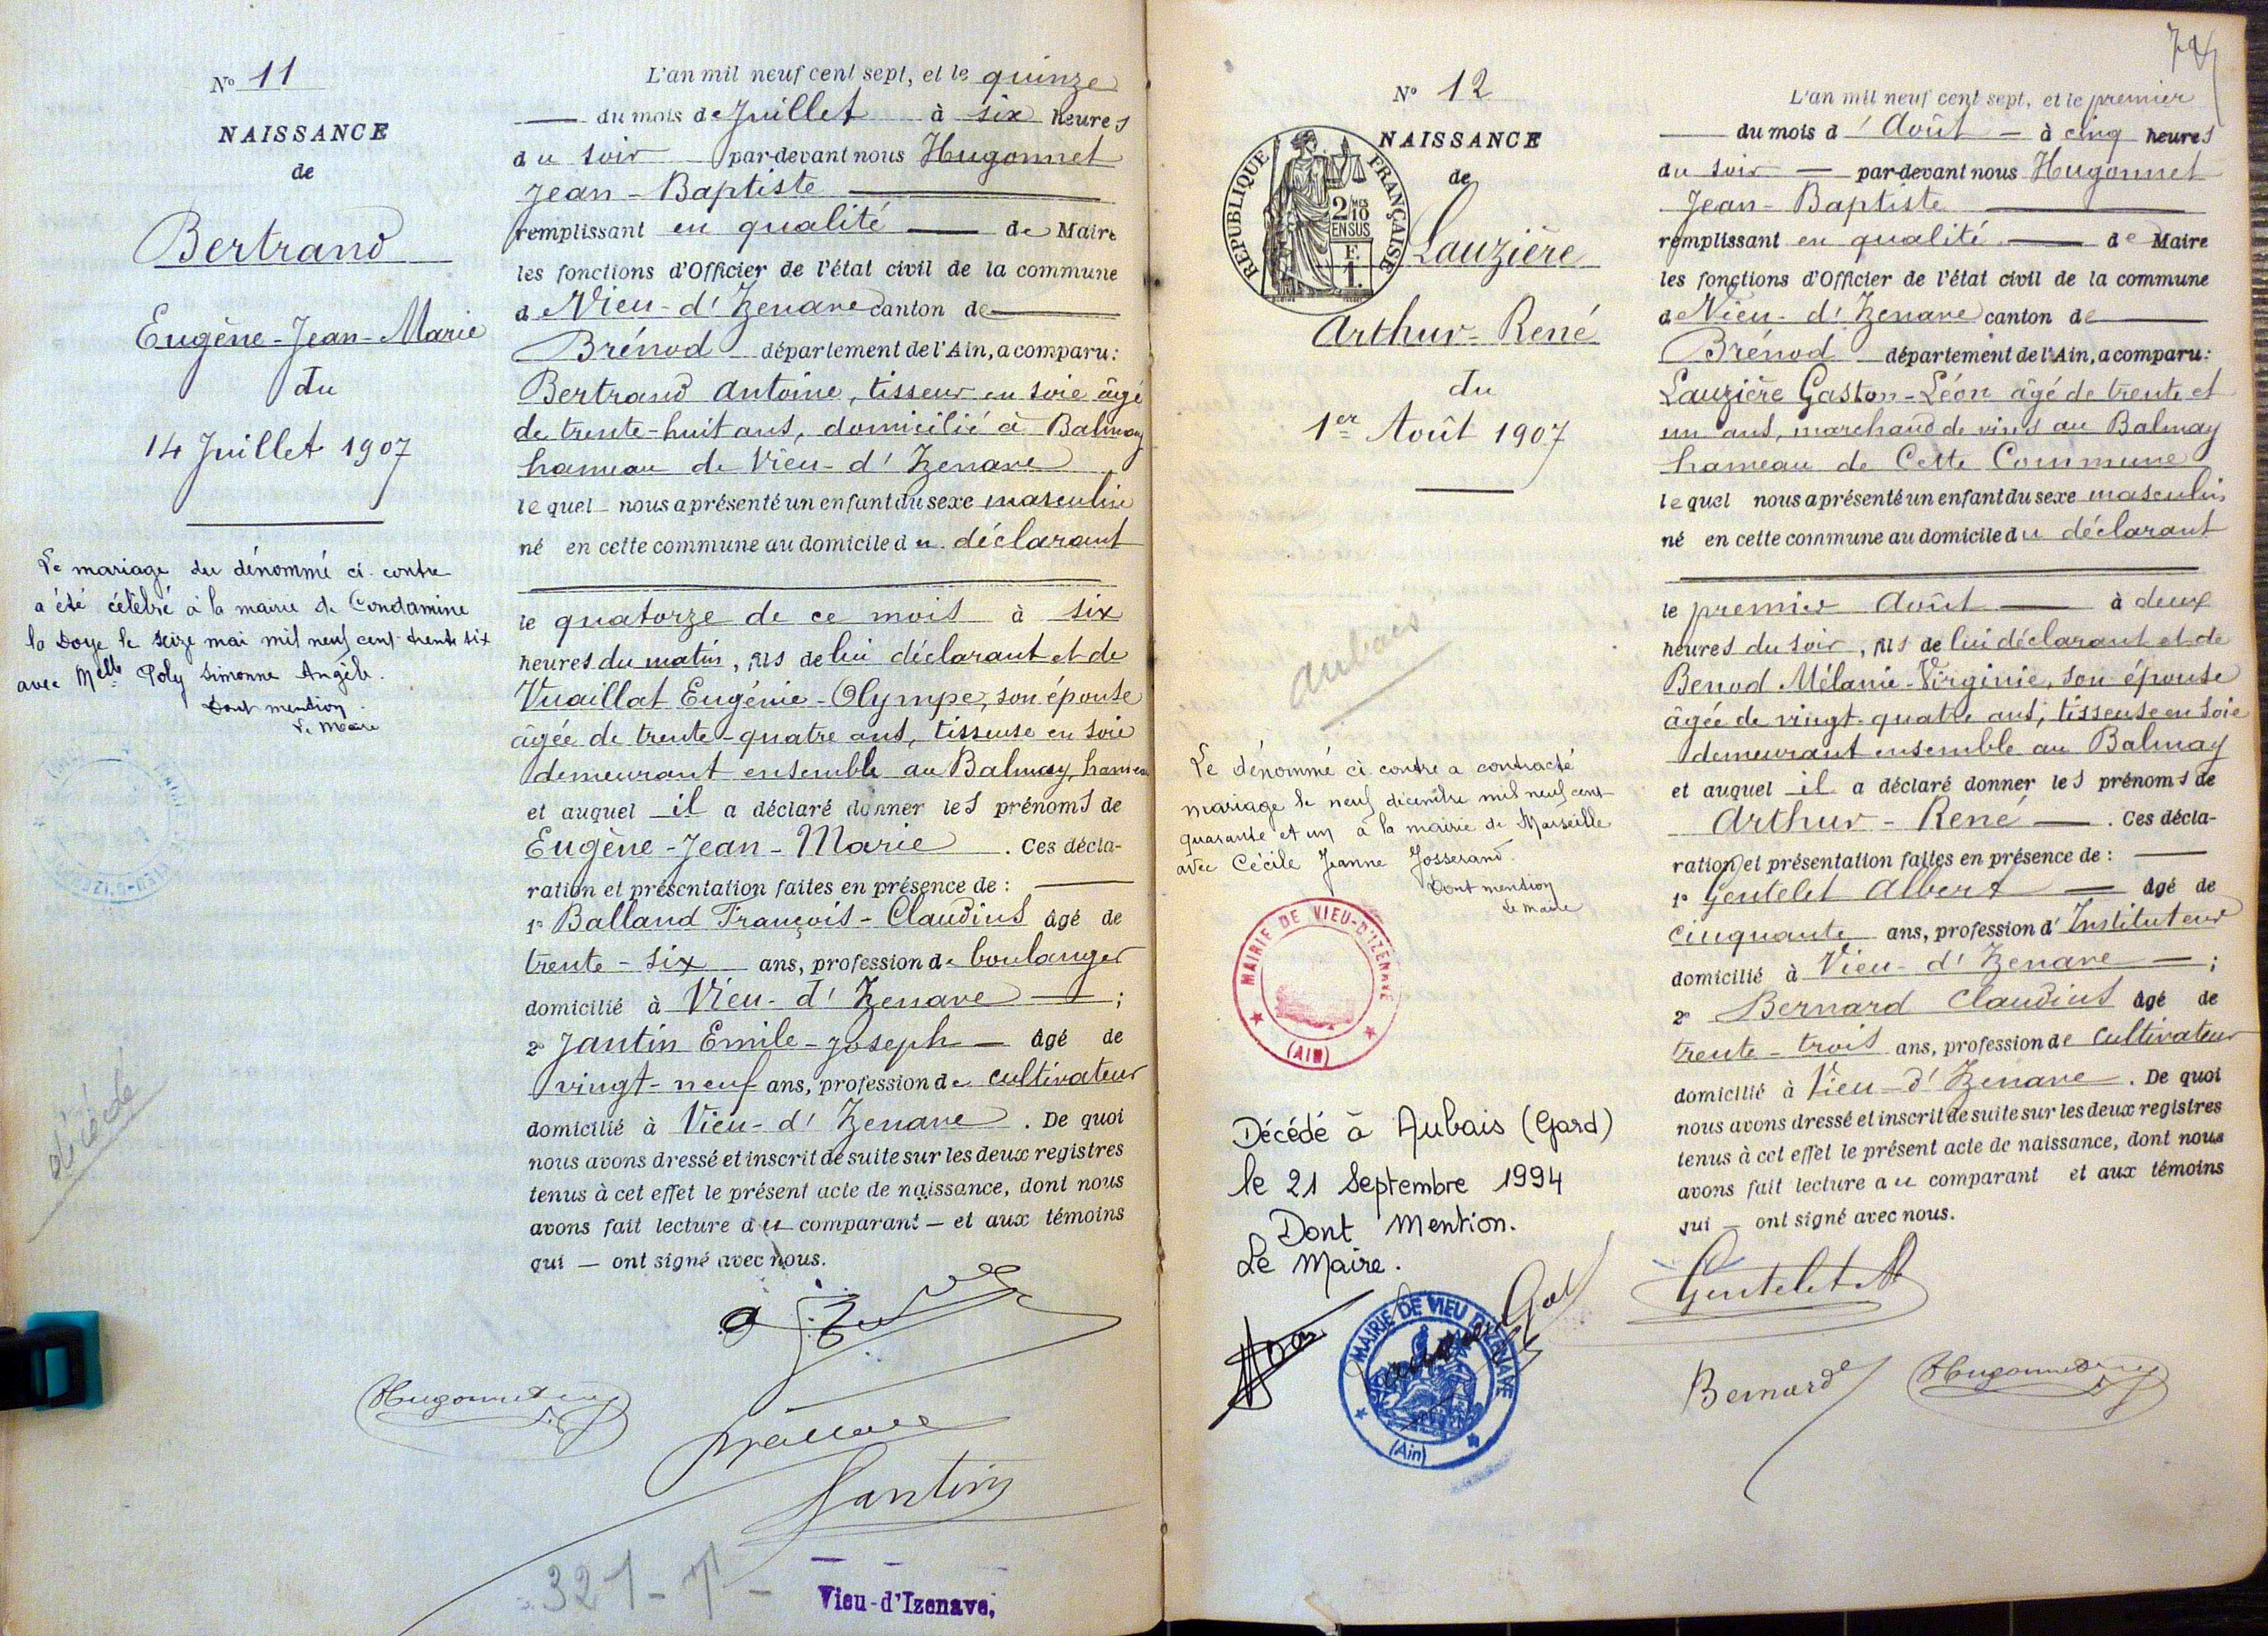 N° 11
NAISSANCE
de
Bertrand
Eugène-Jean-Marie
du
14 Juillet 1907
Le mariage du dénommé ci-contre
a été célébré à la mairie de Condamine
la Doye le seize mai mil neuf cent trente six
avec Melle Poly Simonne Angèle.
Dont mention
Le Maire
décédé
L'an mil neuf cent sept, et le quinze
du mois de Juillet à six heures
du soir par-devant nous Hugonnet
Jean-Baptiste
remplissant en qualité de Maire
les fonctions d'Officier de l'état civil de la commune
de Vieu-d'Izenave canton de
Brénod département de l'Ain, a comparu:
Bertrand Antoine, tisseur en soie âgé
de trente-huit ans, domicilié à Balmay
hameau de Vieu-d'Izenave
lequel nous a présenté un enfant du sexe masculin
né en cette commune au domicile du déclarant
le quatorze de ce mois à six
heures du matin, fils de lui déclarant et de
Vuaillat Eugénie-Olympe, son épouse
âgée de trente-quatre ans, tisseuse en soie
demeurant ensemble au Balmay, hameau
et auquel il a déclaré donner les prénoms de
Eugène-Jean-Marie. Ces décla-
ration et présentation faites en présence de :
1° Balland François-Claudius âgé de
trente-six ans, profession de boulanger
domicilié à Vieu-d'Izenave ;
2° Jantin Emile-Joseph âgé de
vingt-neuf ans, profession de cultivateur
domicilié à Vieu-d'Izenave. De quoi
nous avons dressé et inscrit de suite sur les deux registres
tenus à cet effet le présent acte de naissance, dont nous
avons fait lecture au comparant et aux témoins
qui ont signé avec nous.
Hugonnet
Jantin
321-T-
Vieu-d'Izenave,
74
N° 12
NAISSANCE
de
RÉPUBLIQUE FRANÇAISE
2/10 MES
EN SUS
F.
1.
Lauzière
Arthur-René
du
1er Août 1907
aubais
Le dénommé ci contre a contracté
mariage le neuf décembre mil neuf cent
quarante et un à la mairie de Marseille
avec Cécile Jeanne Josserand.
Dont mention
Le Maire
MAIRIE DE VIEU-D'IZENAVE
(AIN)
Décédé à Aubais (Gard)
le 21 Septembre 1994
Dont Mention.
Le Maire.
MAIRIE DE VIEU D'IZENAVE
(Ain)
L'an mil neuf cent sept, et le premier
du mois d'Août à cinq heures
du soir par-devant nous Hugonnet
Jean-Baptiste
remplissant en qualité de Maire
les fonctions d'Officier de l'état civil de la commune
de Vieu-d'Izenave canton de
Brénod département de l'Ain, a comparu:
Lauzière Gaston-Léon âgé de trente et
un ans, marchand de vins au Balmay
hameau de Cette Commune
lequel nous a présenté un enfant du sexe masculin
né en cette commune au domicile du déclarant
le premier Août à deux
heures du soir, fils de lui déclarant et de
Benod Mélanie-Virginie, son épouse
âgée de vingt-quatre ans, tisseuse en soie
demeurant ensemble au Balmay
et auquel il a déclaré donner les prénoms de
Arthur-René. Ces décla-
ration et présentation faites en présence de :
1° Gentelet Albert âgé de
cinquante ans, profession d'Instituteur
domicilié à Vieu-d'Izenave ;
2° Bernard Claudius âgé de
trente-trois ans, profession de cultivateur
domicilié à Vieu-d'Izenave. De quoi
nous avons dressé et inscrit de suite sur les deux registres
tenus à cet effet le présent acte de naissance, dont nous
avons fait lecture au comparant et aux témoins
qui ont signé avec nous.
Gentelet A
Bernard
Hugonnet